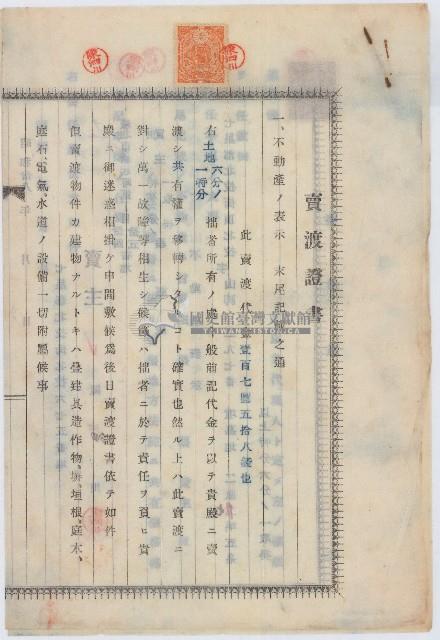 賣渡證書
一、不動產ノ表示 末尾記載之通
此賣渡代金壹百七圓五拾八錢也
右土地六分ノ一持分拙者所有ノ處今般前記代金ヲ以テ貴殿ニ賣
渡シ共有權ヲ移轉シタルコト確實也然ル上ハ此賣渡ニ
對シ萬一故障等相生シ候節ハ拙者ニ於テ責任ヲ負ヒ貴
殿ニ御迷惑相掛ケ申間敷候爲後日賣渡證書依テ如件
但賣渡物件カ建物ナルトキハ疊建具造作物、塀、垣根、庭木、
庭石、電氣、水道ノ設備一切附屬候事
國史館臺灣文獻館
TAIWAN HISTORICA